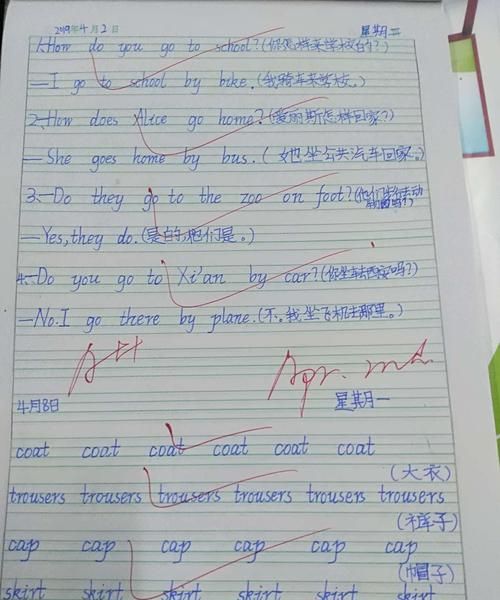 2019年4月2日 星期二
1.—How do you go to school?(你怎样来学校的?)
—I go to school by bike.(我骑车来学校。)
2.—How does Alice go home?(爱丽斯怎样回家?)
—She goes home by bus.(她坐公共汽车回家。)
3.—Do they go to the zoo on foot?(他们步行去动物园吗?)
—Yes,they do.(是的,他们是。)
4.—Do you go to Xi'an by car?(你坐车去西安吗?)
—No.I go there by plane.(不。我坐飞机去那里。)
A++ Apr.
4月8日 星期一
coat coat coat coat coat coat
(大衣)
trousers trousers trousers trousers trousers trousers
(裤子)
cap cap cap cap cap cap
(帽子)
skirt skirt skirt skirt skirt skirt